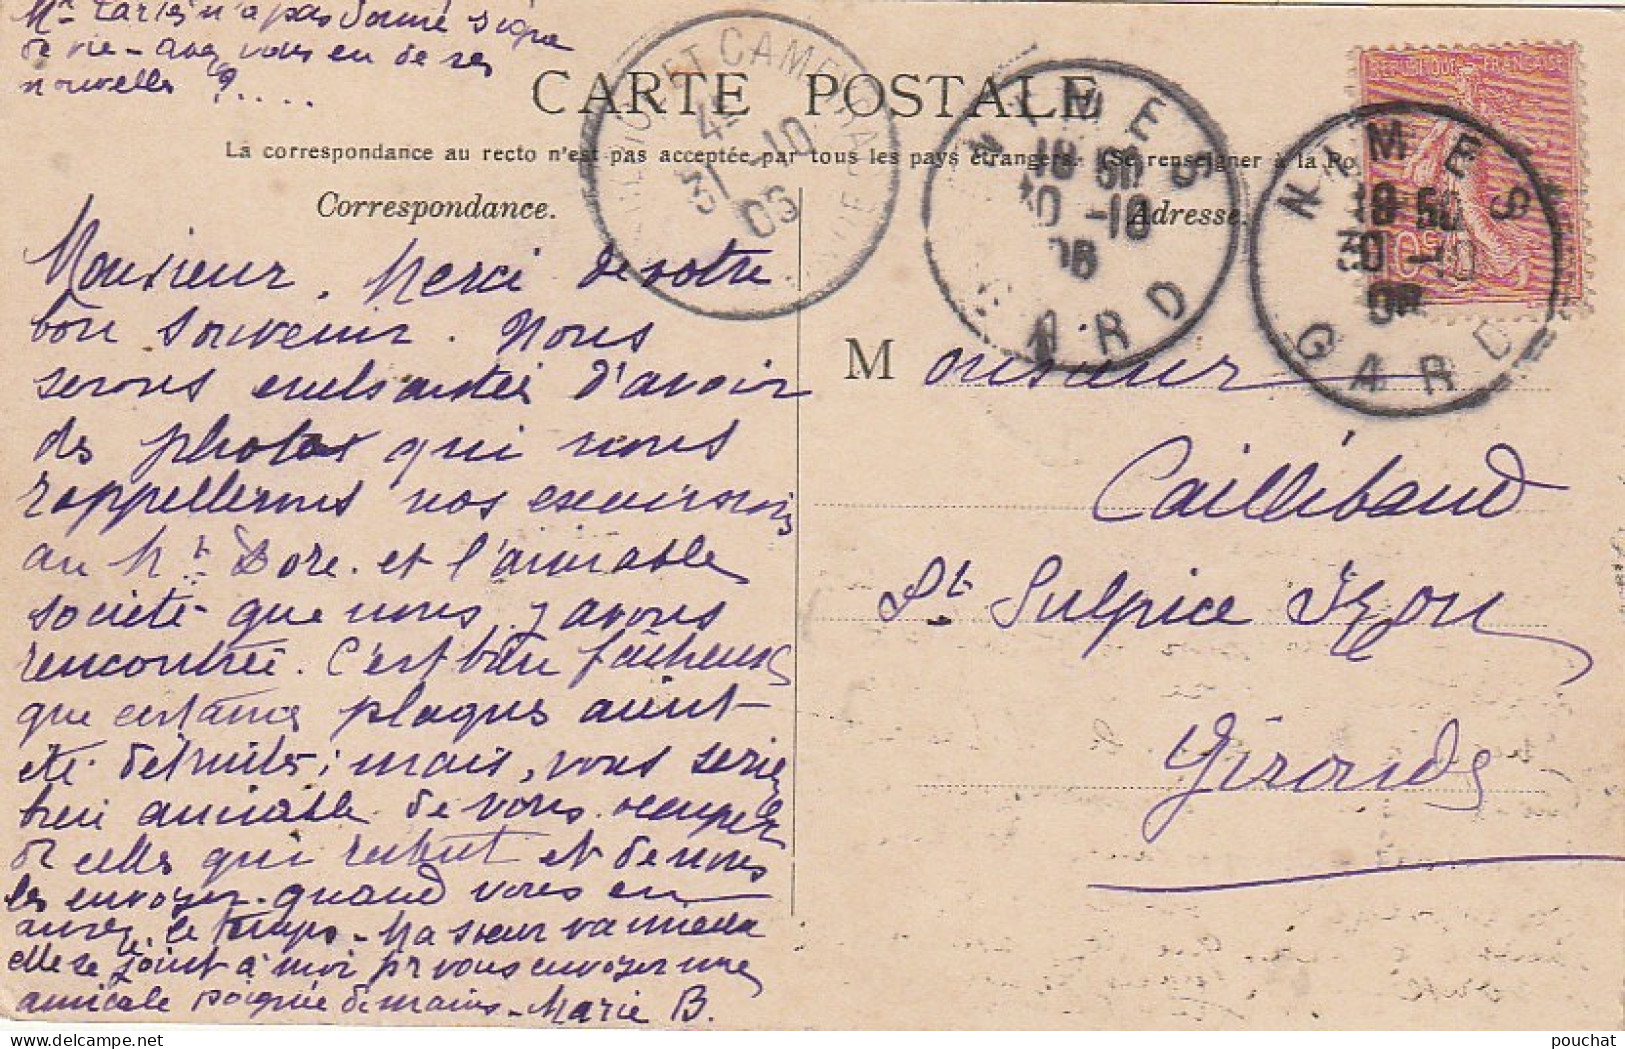 Mr Tarlé n'a pas donné signe
de vie - Avez vous eu de ses
nouvelles ?....
CARTE POSTALE
La correspondance au recto n'est pas acceptée par tous les pays étrangers. (Se renseigner à la Po
Correspondance.
Adresse.
Monsieur. Merci de votre
bon souvenir. Nous
serons enchantées d'avoir
des photos qui nous
rappellerons nos excursions
au Mt Dore. et l'aimable
société que nous y avons
rencontrée. C'est bien fâcheux
que certaines plaques aient
été détruites; mais, vous seriez
bien aimable de vous occuper
de celles qui restent et de nous
les envoyer quand vous en
aurez le temps. Ma soeur va mieux
elle se joint à moi pr vous envoyer une
amicale poignée de mains - Marie B.
Monsieur
Caillibaud
St. Sulpice Izon
Gironde
REPUBLIQUE FRANÇAISE
NIMES
18 50
30 -10
06
GARD
NIMES
18 50
30 -10
06
GARD
ET CAMEYRAC
4E
31 -10
06
pouchat